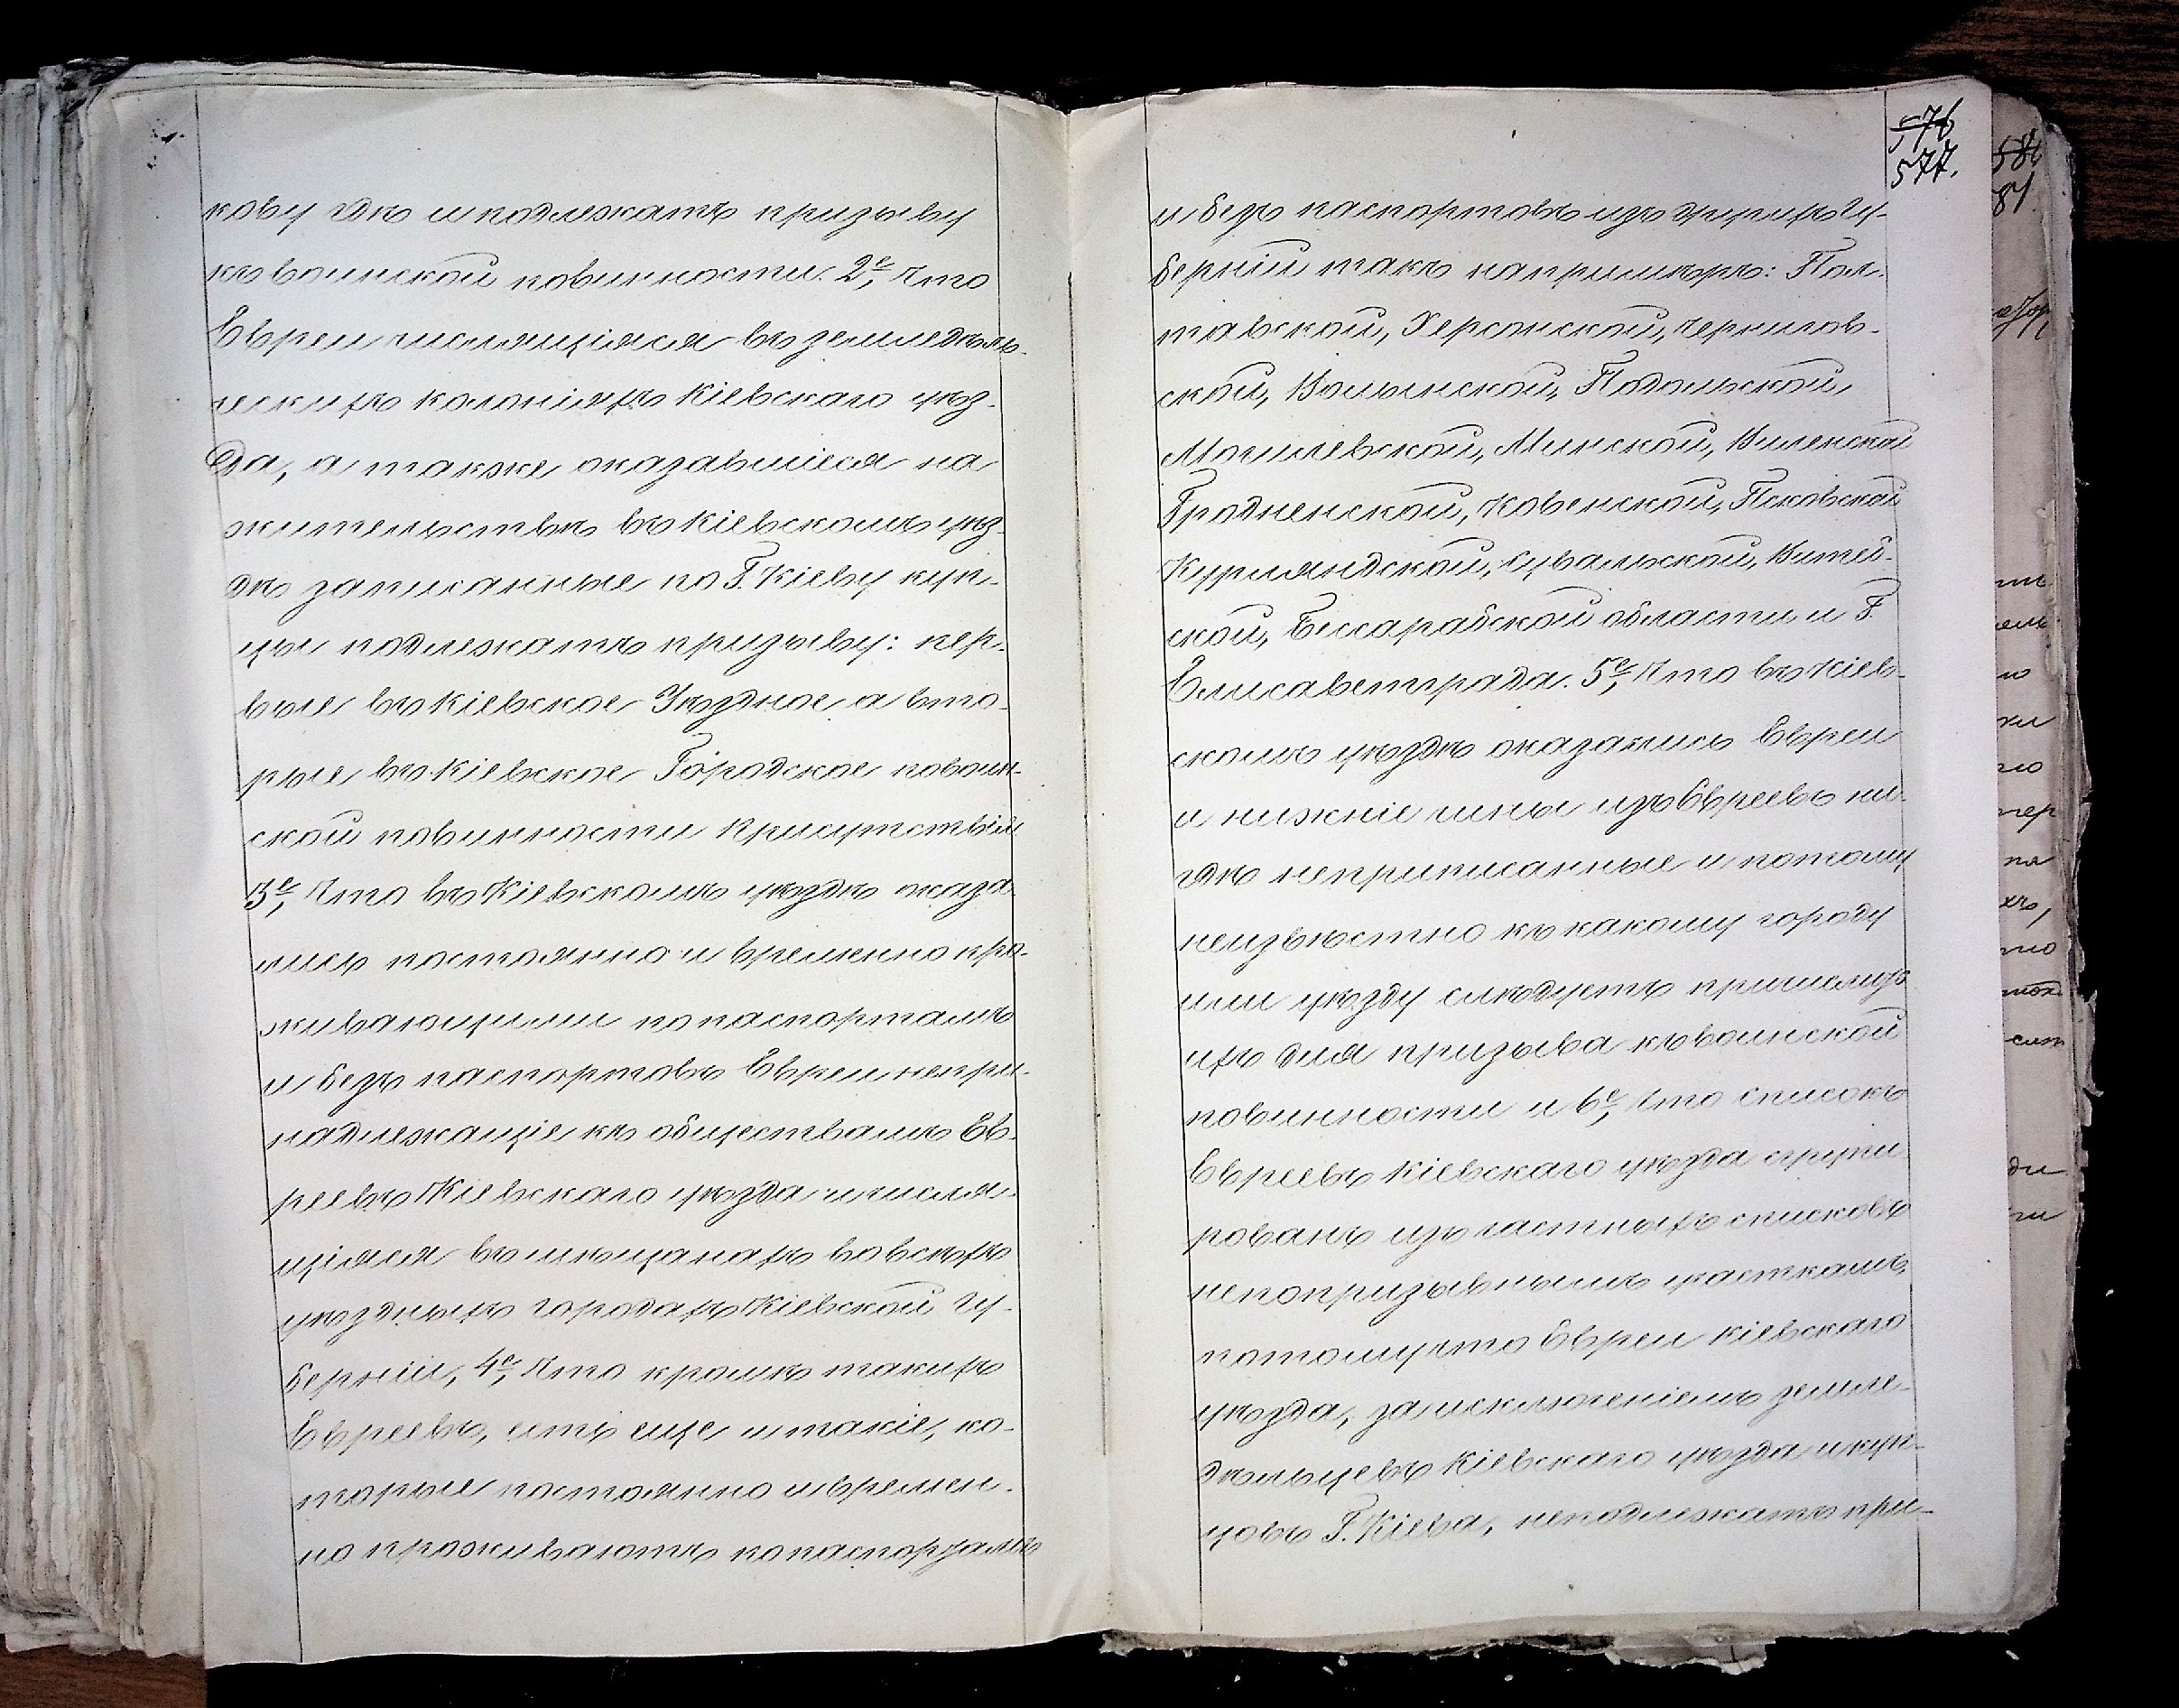 кову гдѣ и подлежатъ призыву
къ воинской повинности. 2е, Что
Евреи числящіяся въ земледѣль-
ческихъ колоніяхъ Кіевскаго уѣз-
да, а также оказавшіеся на
жительствѣ въ Кіевскомъ уѣз-
дѣ записанные по Г. Кіеву куп-
цы подлежатъ призыву: пер-
вые въ Кіевское Уѣздное а вто-
рые въ Кіевское Городское повоин-
ской повинности присутствіи
3е, Что въ Кіевскомъ уѣздѣ оказа
лись постоянно и временно про-
живающими по паспортамъ
и безъ паспортовъ Евреи непри-
надлежащіе къ обществамъ Ев-
реевъ Кіевскаго уѣзда и числя-
щіяся въ мѣщанахъ во всѣхъ
уѣздныхъ городахъ Кіевской Гу-
берніи, 4е, Что кромѣ такихъ
Евреевъ, есть еще и такіе, ко-
торые постоянно и времен-
но проживаютъ по паспортамъ
576
577.
и безъ паспортовъ изъ другихъ Гу-
берній такъ напримѣръ: Пол-
тавской, Херсонской, Чернигов-
ской, Волынской, Подольской,
Могилевской, Минской, Виленской
Гродненской, Ковенской, Псковской
Курляндской, Сувальской, Витеб-
ской, Бессарабской области и Г.
Елисаветграда. 5е, Что въ Кіев-
скомъ уѣздѣ оказались Евреи
и нижніе чины изъ Евреевъ ни-
гдѣ неприписанные и потому
неизвѣстно къ какому городу
или уѣзду слѣдуетъ
ихъ для призыва къ воинской
повинности и 6е, Что списокъ
Евреевъ Кіевскаго уѣзда групи
рованъ изъ частныхъ списковъ
непопризывнымъ участкамъ,
потому что Евреи Кіевскаго
уѣзда, за исключеніемъ земле-
дѣльцевъ Кіевскаго уѣзда и куп-
цовъ Г. Кіева, неподлежатъ при-